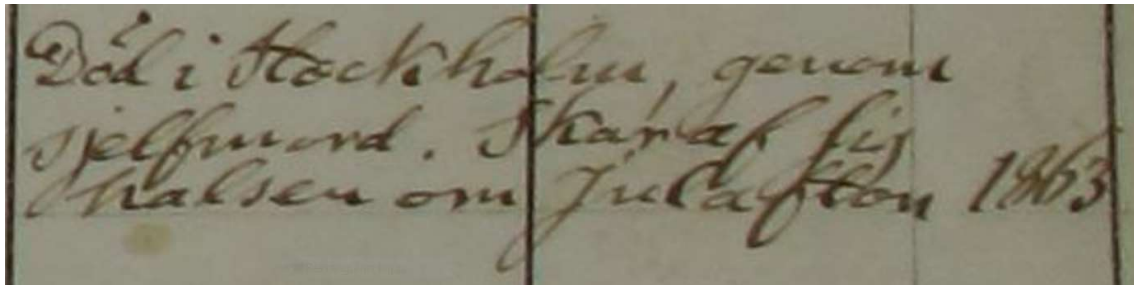 Död i Stockholm, genom
sjelfmord. Skar af sig
halsen om Julafton 1863